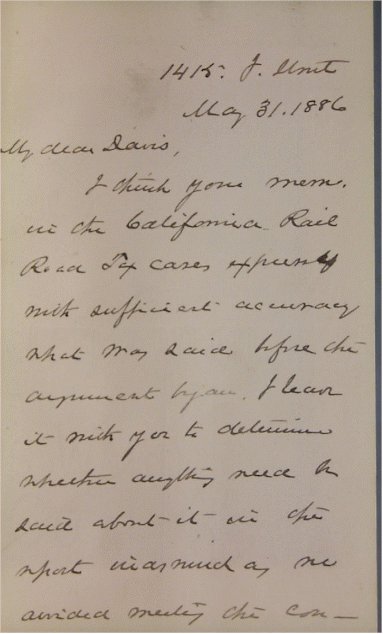 1415. I. Street
May 31. 1886
My dear Davis,
I think your mem.
in the California Rail
Road Tax cases expresses
with sufficient accuracy
what was said before the
argument began. I leave
it with you to determine
whether anything need be
said about it in the
report inasmuch as we
avoided meeting the con-